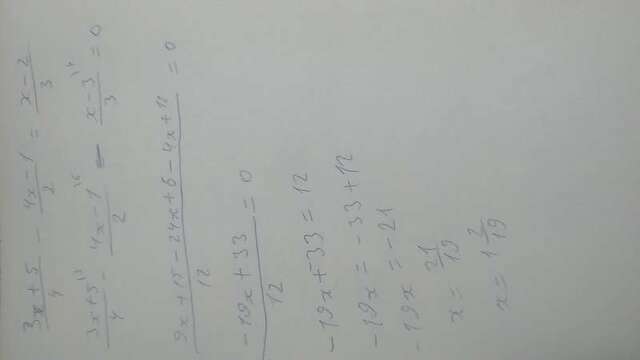 (3x+5)/4 - (4x-1)/2 = (x-2)/3
(3x+5)/4 - (4x-1)/2 - (x-3)/3 = 0
(9x+15-24x+6-4x+12)/12 = 0
(-19x+33)/12 = 0
-19x+33 = 12
-19x = -33+12
-19x = -21
x = 21/19
x = 1 2/19